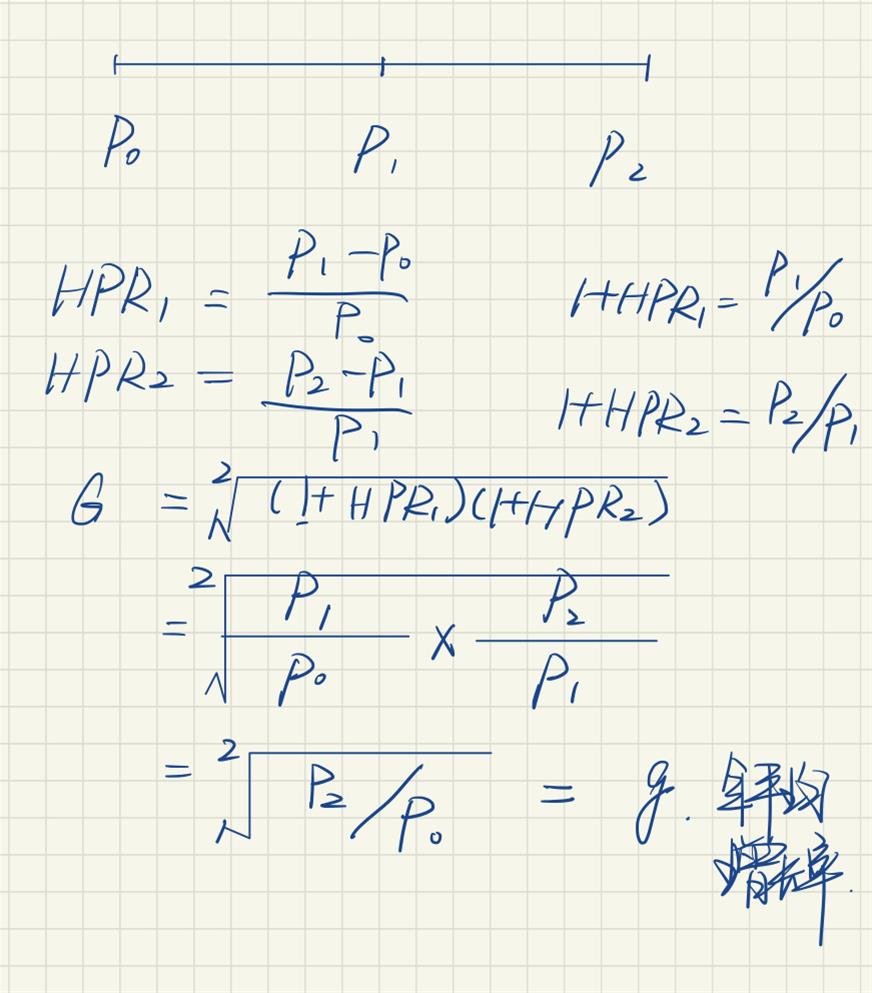 P₀ P₁ P₂
HPR₁ = (P₁ - P₀) / P₀ 1+HPR₁ = P₁/P₀
HPR₂ = (P₂ - P₁) / P₁ 1+HPR₂ = P₂/P₁
G = ²√((1+HPR₁)(1+HPR₂))
= ²√(P₁/P₀ × P₂/P₁)
= ²√(P₂/P₀) = g. 年平均
增长率.